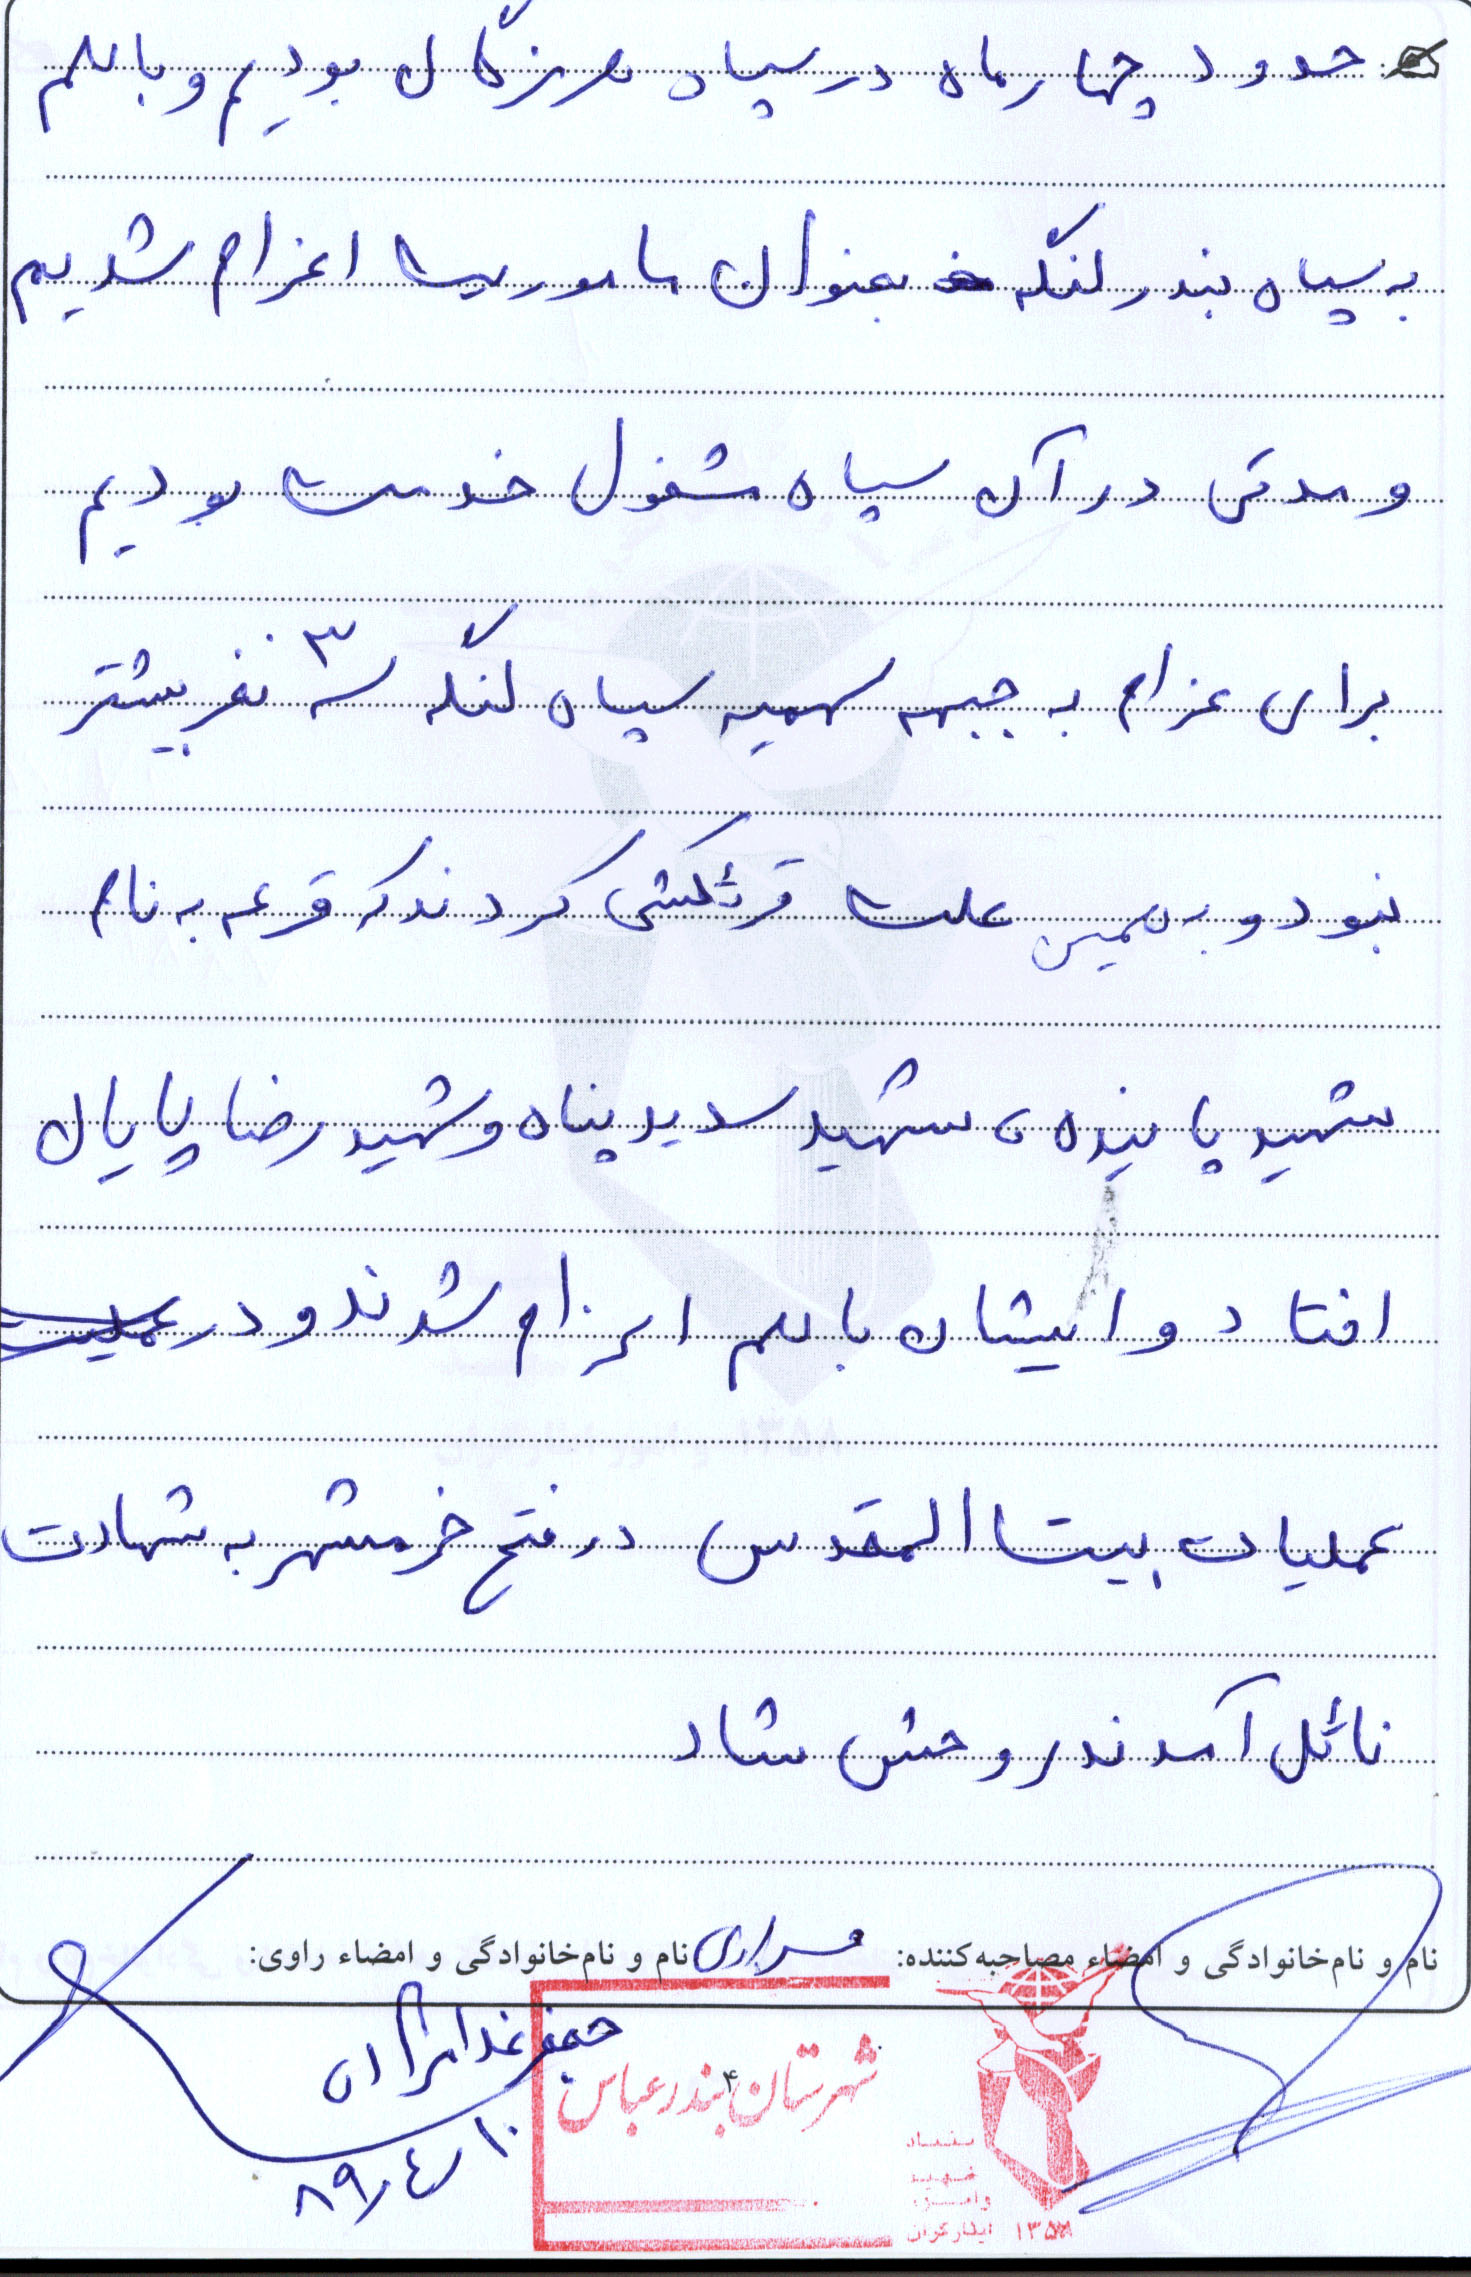 حدود چهار ماه در سپاه هرمزگان بودیم و با هم
به سپاه بندر لنگه بعنوان ماموریت اعزام شدیم
و مدتی در آن سپاه مشغول خدمت بودیم
برای عزام به جبهه سهمیه سپاه لنگه سه ۳ نفر بیشتر
نبود و به همین علت قرئکشی کردند که قرعه به نام
شهید پاینده، شهید سدید پناه و شهید رضا پایان
افتاد و ایشان با هم اعزام شدند و در
عملیات بیت المقدس در فتح خرمشهر به شهادت
نائل آمدند روحش شاد
نام و نام‌خانوادگی و امضاء مصاحبه‌کننده: نام و نام‌خانوادگی و امضاء راوی:
جعفر
۸۹/۴/۱۰
۴
شهرستان بندرعباس
بنیاد
شهید
و امور
ایثارگران ۱۳۵۸